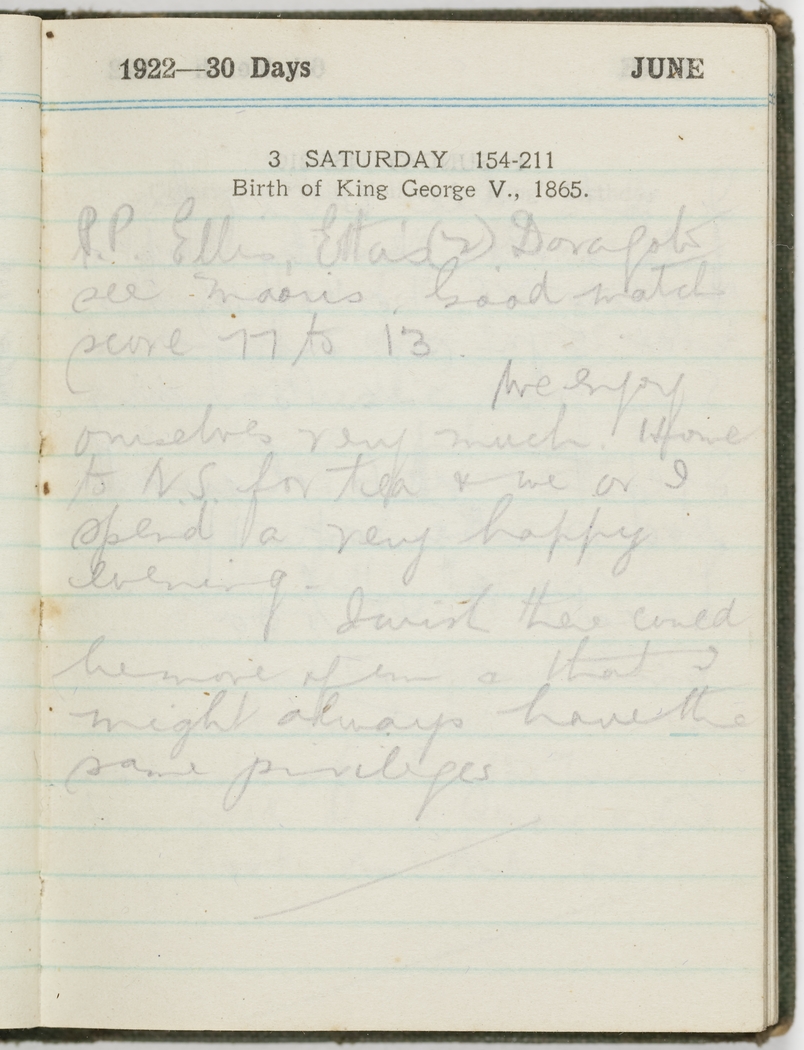 1922—30 Days JUNE
3 SATURDAY 154-211
Birth of King George V., 1865.
P.P. Ellis, Etta's (2)
see Maoris. Good match
score 77 to 13.
We enjoy
ourselves very much. Home
to N.S. for tea & we or I
spend a very happy
evening.
I wish there could
be more of em & that I
might always have the
same privileges